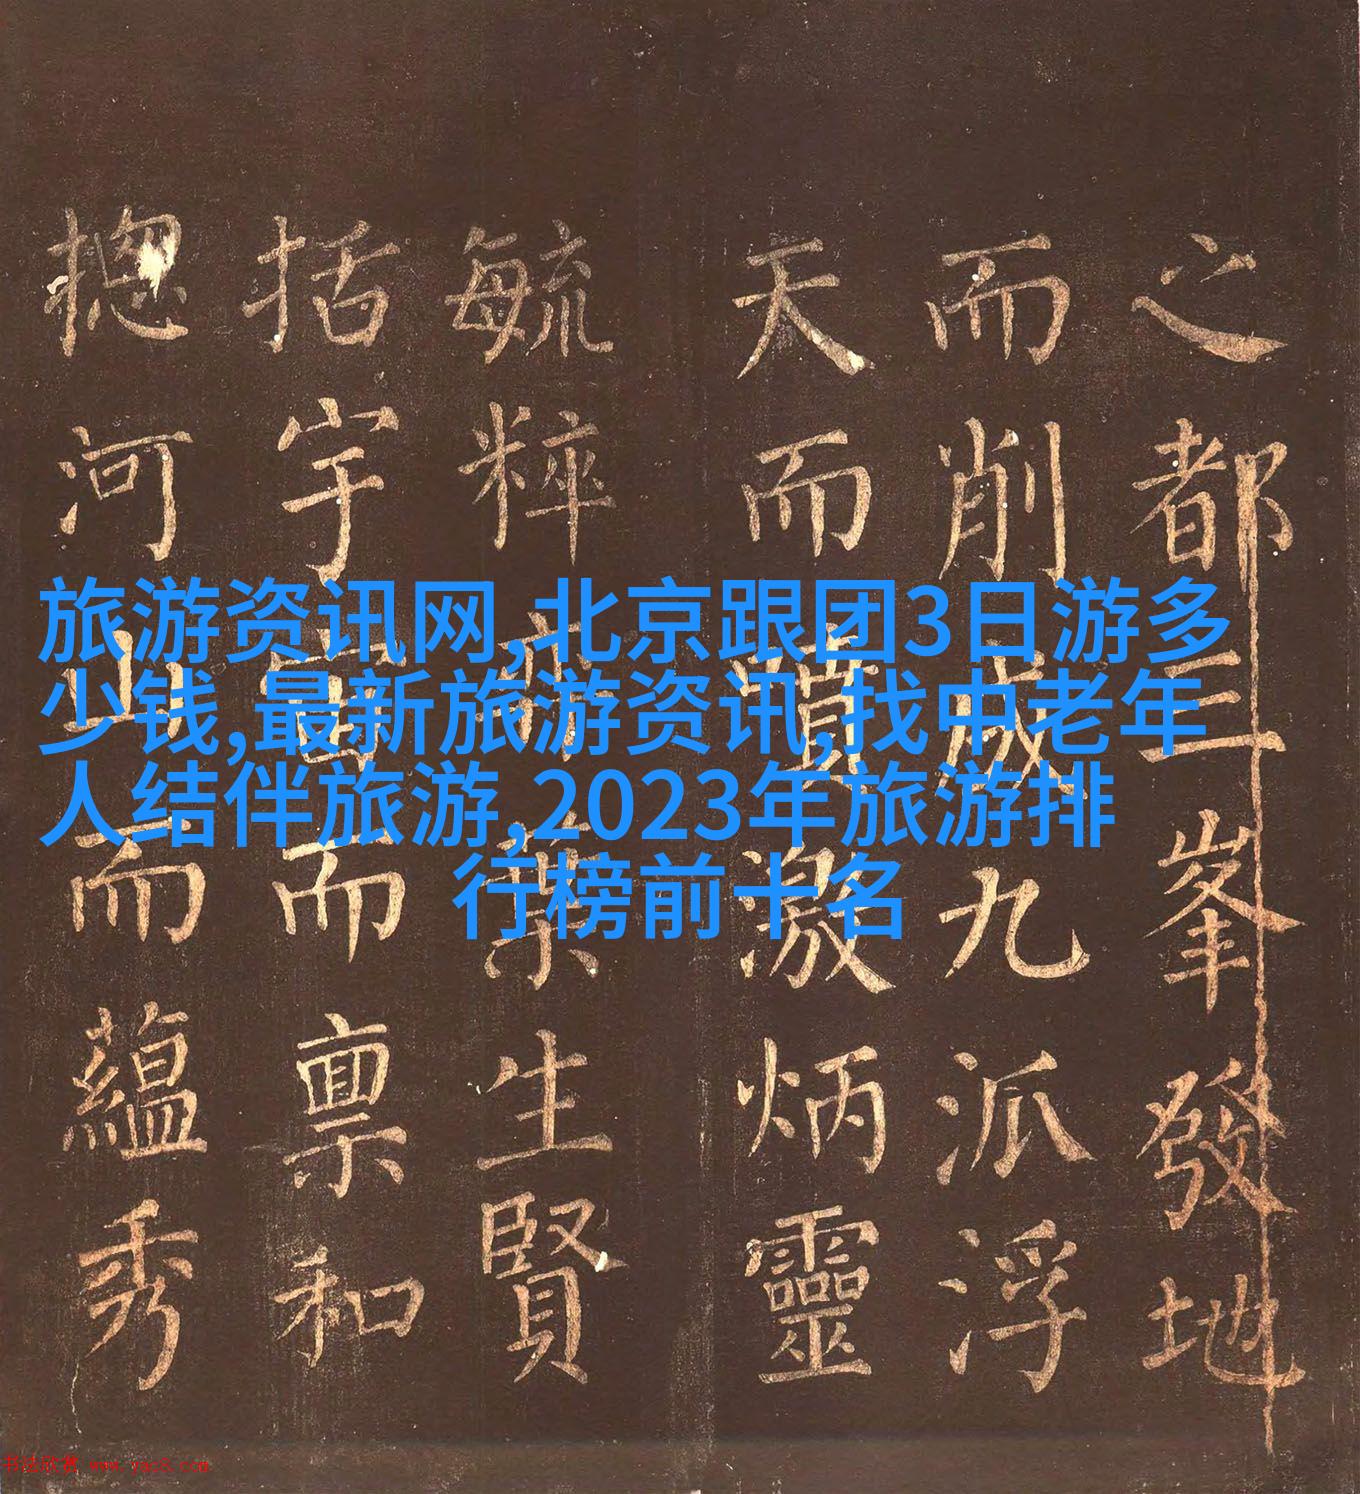 之都三峯發地
而削成九派浮
天而噴激炳靈
毓粹
生賢
括宇宙而稟和
揔河山而蘊秀
旅游资讯网,北京跟团3日游多
少钱,最新旅游资讯,找中老年
人结伴旅游,2023年旅游排
行榜前十名
书法欣赏 www.yac8.com